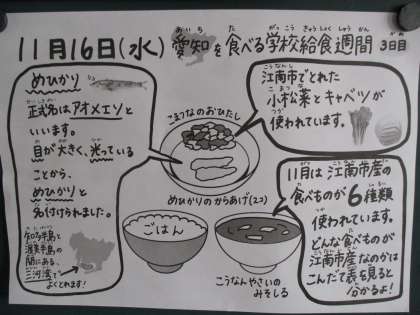 11月16日(水) 愛知を食べる学校給食週間 3日目
あいち た がっこうきゅうしょくしゅうかん かめ
めひかり
正式名はアオメエソと
いいます。
目が大きく、光っている
ことから、
めひかりと
名付けられました。
知多半島と
渥美半島の
間にある、
三河湾で
よくとれます!
こまつなのおひたし
めひかりのからあげ(2コ)
ごはん
こうなんやさいの
みそしる
江南市でとれた
小松菜とキャベツが
使われています。
11月は江南市産の
食べものが6種類
使われています。
どんな食べものが
江南市産なのかは
こんだて表を見ると
分かるよ!